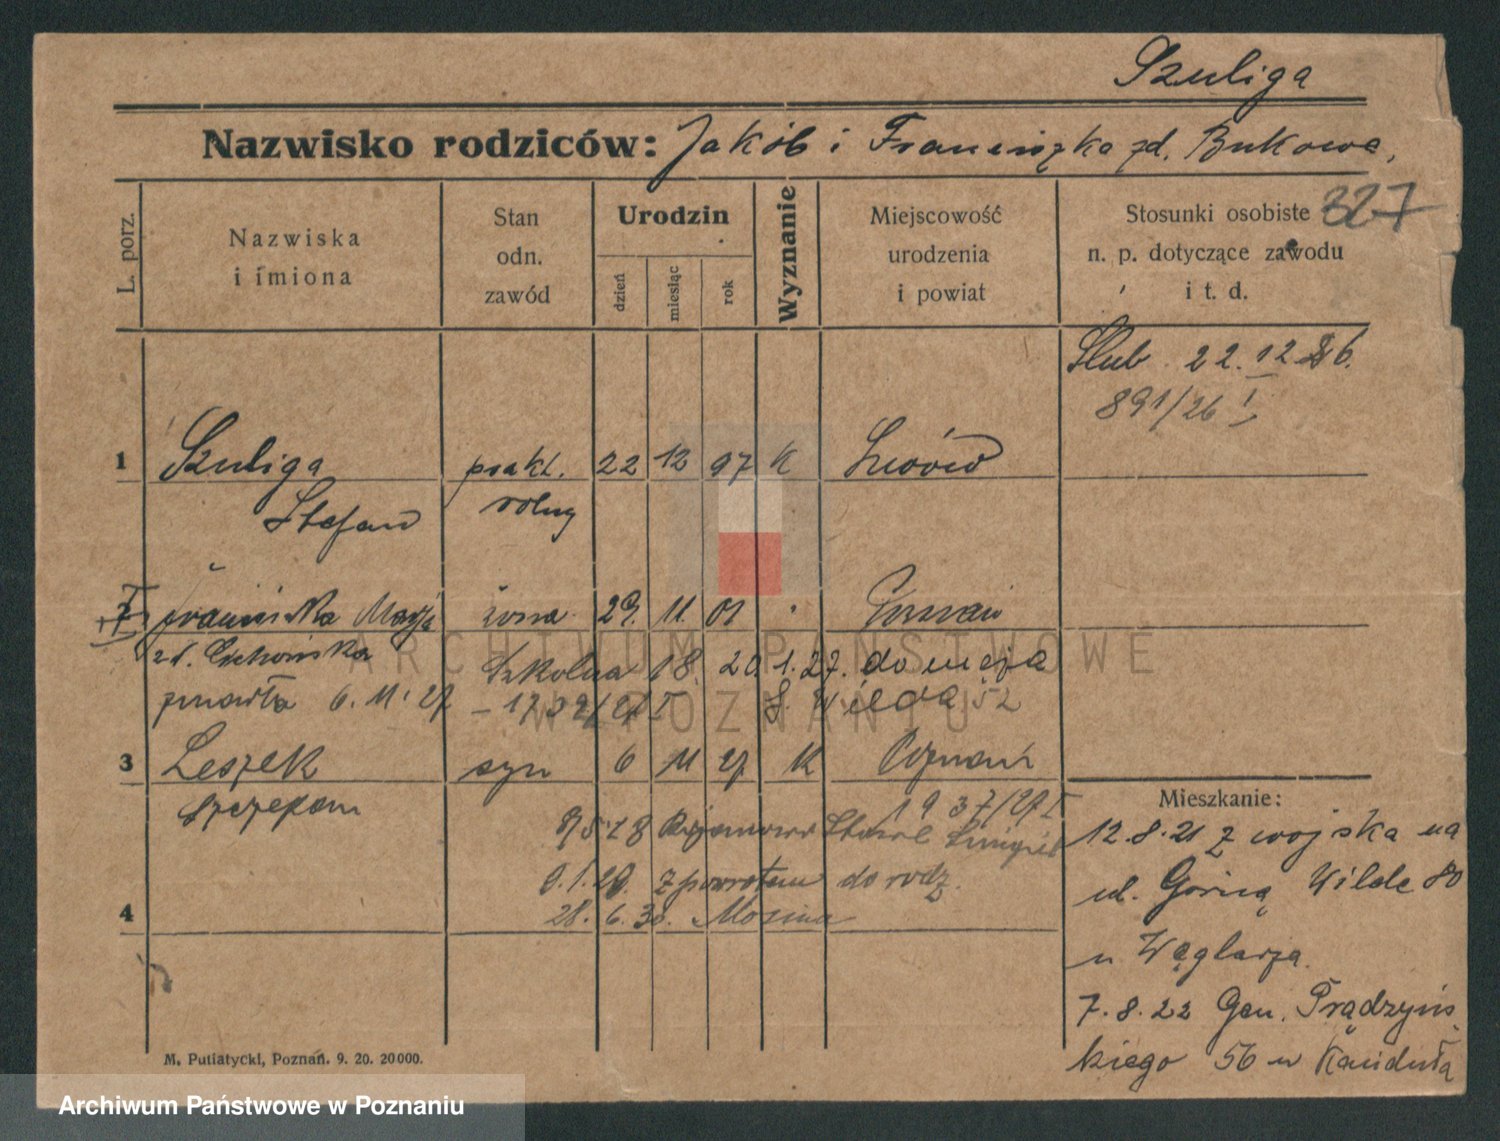 Szuliga
Nazwisko rodziców: Jakób i Franciszka zd. Bukowa,
L. porz.
Nazwiska
i imiona
Stan
odn.
zawód
Urodzin
dzień
miesiąc
rok
Wyznanie
Miejscowość
urodzenia
i powiat
Stosunki osobiste
n. p. dotyczące zawodu
i t. d.
327
Ślub 22.12.26.
891/26 I
1 Szuliga prakt. 22 12 97 K Lwów
Stefan rolny
2 Franciszka Marja żona 29. 11. 01 Poznań
zd. Cichońska Szkolna 18. 20.1.27. do męża
zmarła 6.11.27 G. Wilda 52
3 Leszek syn 6 11 27 K Poznań
Szczepan
1937/27 I
z powrotem do rodz.
4 28.6.30. Mosina
Mieszkanie:
12.8.21 z wojska na
ul. Górną Wildę 80
u Węglarza.
7.8.22 Gen. Prądzyńs
kiego 56 u Kanduła
M. Putiatycki, Poznań. 9. 20. 20000.
ARCHIWUM PAŃSTWOWE
W POZNANIU
Archiwum Państwowe w Poznaniu